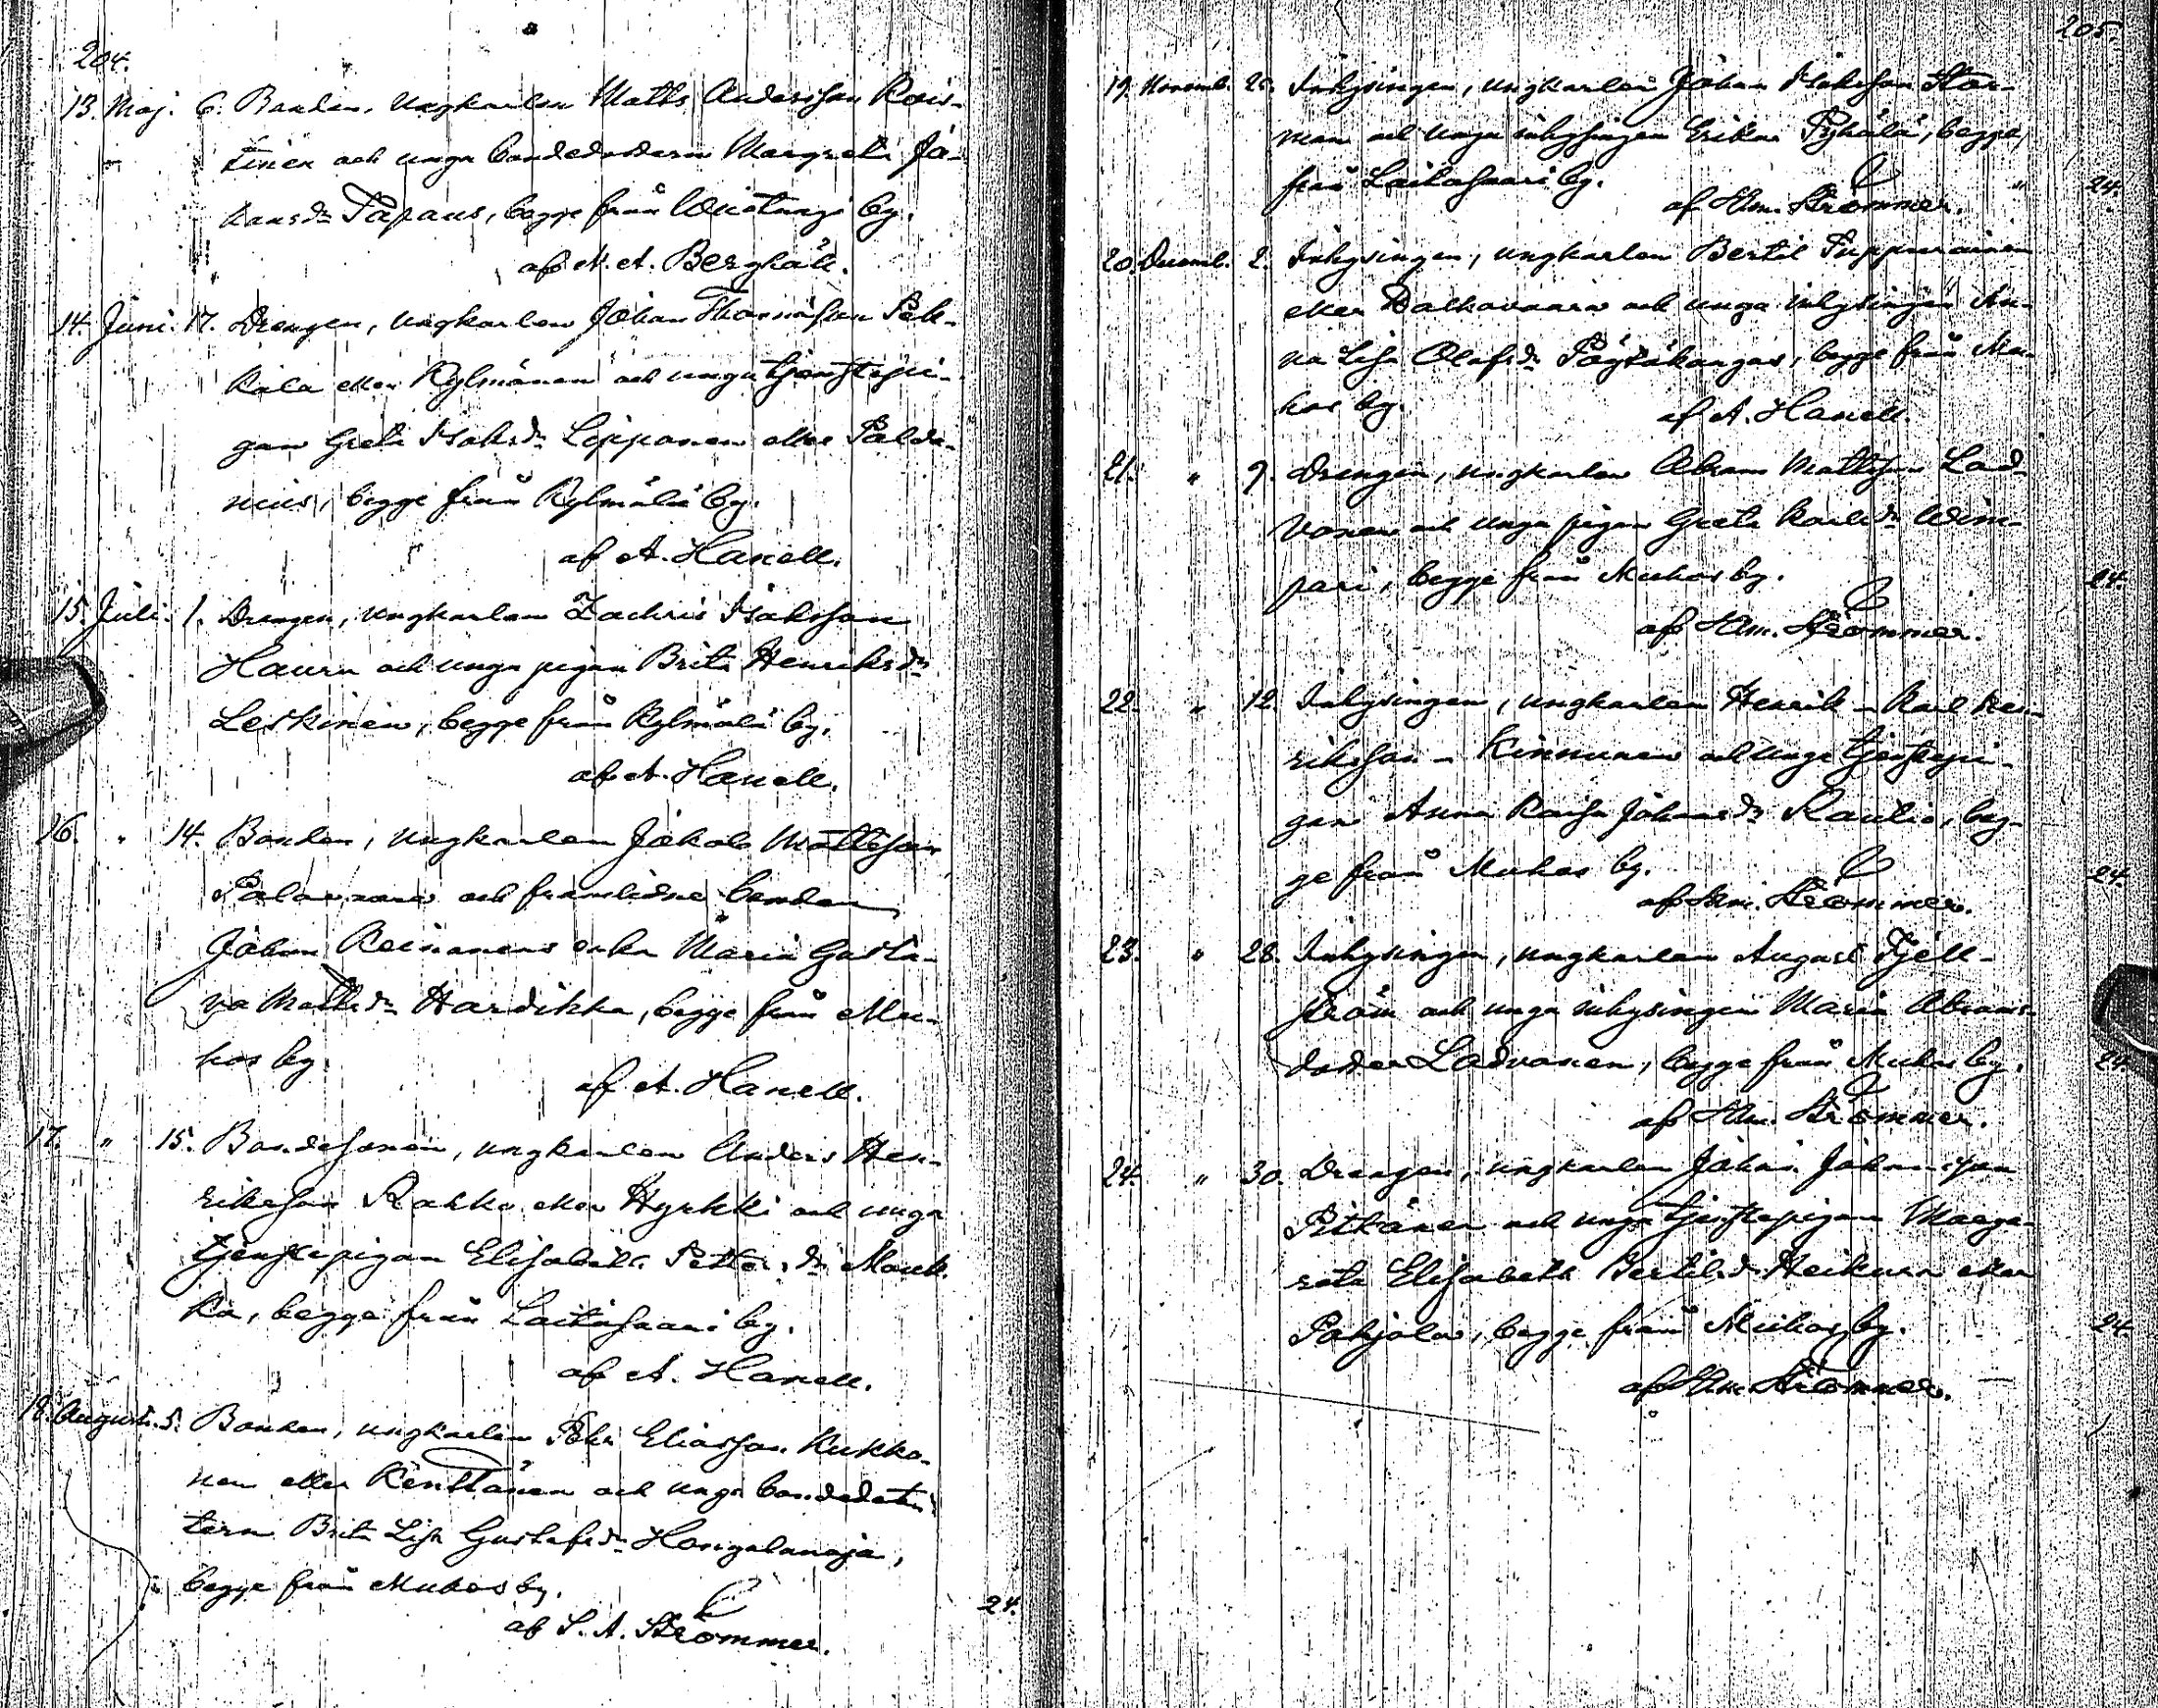 204.
13. Maj. 6. Bonden, Ungkarlen Matts Andersson Rois-
tinen och unga bondedottern Margreta Jo-
hansdr Papaus, begge från by.
af A. A. Berghäll.
14. Juni. 17. Drengen, Ungkarlen Johan Thomasson Pek-
kala eller Kylmänen och unga tjenstepi-
gan Greta Isaksdr Lipponen eller Palda-
nius, begge från Kylmälä by.
af A. Hanell.
15. Juli. 1. Drengen, Ungkarlen Zachris Isaksson
Hauru och unga pigan Brita Henriksdr
Leskinen, begge från Kylmälä by.
af A. Hanell.
16. " 14. Bonden, Ungkarlen Jakob Mattsson
Palovaara och framlidne bonden
Johan Reinanens enka Maria Gusta-
va Mattsdr Hardikka, begge från Mu-
hos by.
af A. Hanell.
17. " 15. Bondesonen, ungkarlen Anders Hen-
riksson Rahko eller Hyrkki och unga
tjenstepigan Elisabeth Pettersdr Mouk-
ka, begge från Laitasaari by.
af A. Hanell.
18. Augusti. 5. Bonden, ungkarlen Pehr Eliasson Kukko-
nen eller Kenttänen och unga bondedot-
tern Brita Lisa Gustafsdr Hongalanoja,
begge från Muhos by.
af S. A. Strömmer. 24.
205.
19. Novemb. 25. Inhysingen, ungkarlen Johan Isaksson Stor-
man och unga inhysingen Erika Pyhälä, begge
från Laitasaari by.
af Hm. Strömmer. " 24.
20. Decemb. 2. Inhysingen, ungkarlen Bertil Tuppurainen
eller Valkovaara och unga inhysingen An-
na Lisa Olofsdr Pöytäkangas, begge från Mu-
hos by. af A. Hanell.
21. " 9. Drengen, ungkarlen Abram Mattsson Lad-
vonen och unga pigan Greta Karlsdr Wim-
pari, begge från Muhos by. 24.
af Hm. Strömmer.
22. " 12. Inhysingen, ungkarlen Henrik - Karl Hen-
riksson - Kinnunen och unga tjenstepi-
gan Anna Kaisa Johansdr Rautio, beg-
ge från Muhos by. 24.
af Hm. Strömmer.
23. " 28. Inhysingen, ungkarlen August Fjell-
ström och unga inhysingen Maria Abrams-
dotter Ladvonen, begge från Muhos by. 24.
af Hm. Strömmer.
24. " 30. Drengen, ungkarlen Johan Johansson
Pitkänen och unga tjenstepigan Marga-
reta Elisabeth Bertilsdr Heikura eller
Pohjola, begge från Muhos by. 24.
af Hm. Strömmer.